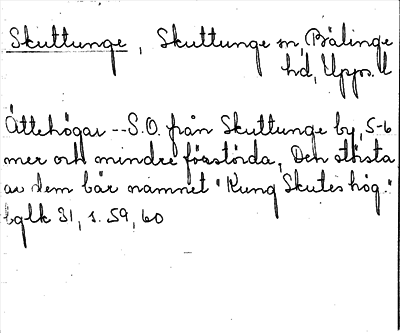 Skuttunge, Skuttunge sn, Bälinge
hd, Upps. l
Ättehögar -- S.O. från Skuttunge by, 5-6
mer och mindre förstörda, Den största
av dem bär namnet "Kung Skutes hög."
bglk 31, s. 59, 60